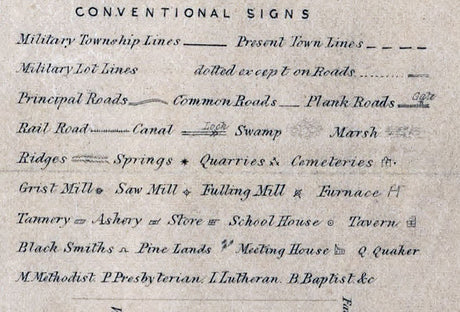 CONVENTIONAL SIGNS
Military Township Lines Present Town Lines
Military Lot Lines dotted except on Roads
Principal Roads Common Roads Plank Roads Gate
Rail Road Canal Lock Swamp Marsh
Ridges Springs Quarries Cemeteries
Grist Mill Saw Mill Fulling Mill Furnace
Tannery Ashery Store School House Tavern
Black Smiths Pine Lands Meeting House Q. Quaker
M. Methodist. P. Presbyterian. L. Lutheran. B. Baptist &c